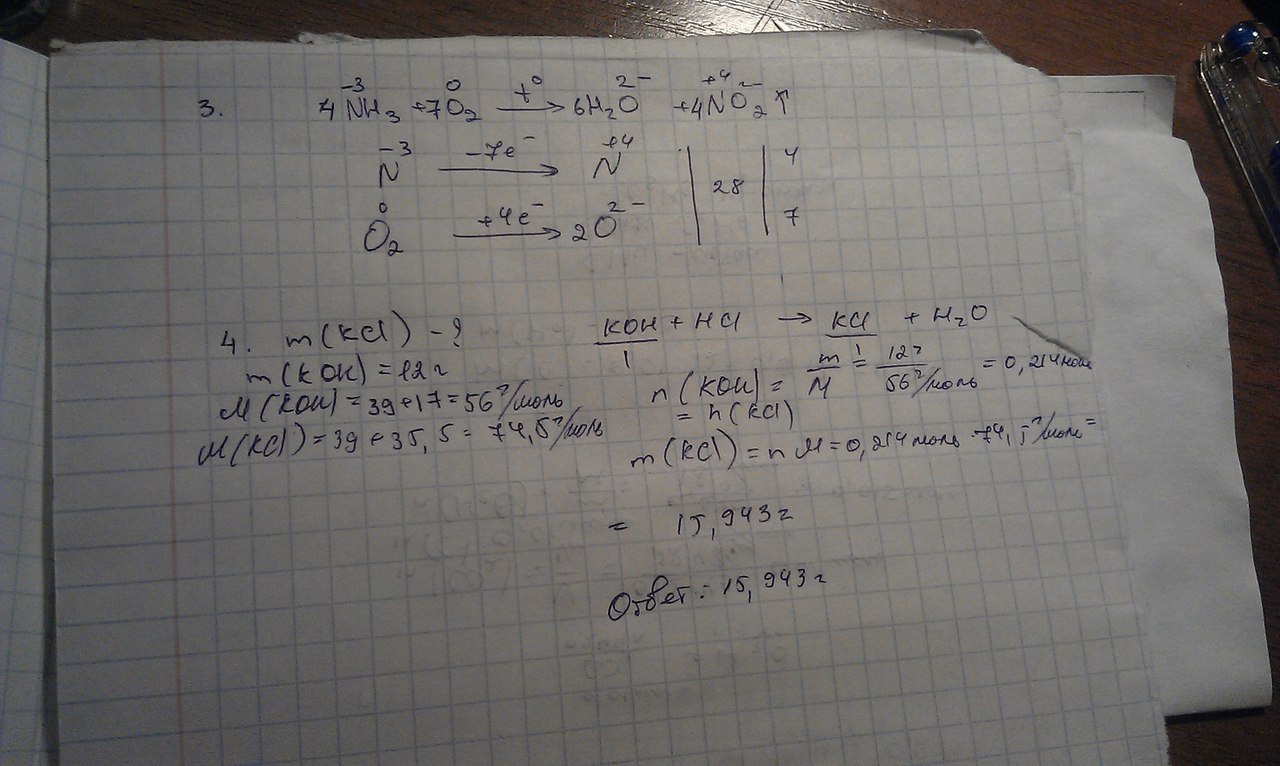 3. 4NH₃⁻³ + 7O₂⁰ —t⁰→ 6H₂O²⁻ + 4N⁺⁴O₂²⁻↑
N⁻³ —-7e⁻→ N⁺⁴ | 28 | 4
O₂⁰ —+4e⁻→ 2O²⁻ | | 7
4. m(KCl) - ?
m(KOH) = 12г
M(KOH) = 39+17 = 56г/моль
M(KCl) = 39+35,5 = 74,5г/моль
KOH + HCl → KCl + H₂O
1 1
n(KOH) = m/M = 12г/56г/моль = 0,214моль
= n(KCl)
m(KCl) = nM = 0,214моль·74,5г/моль =
= 15,943г
Ответ: 15,943г